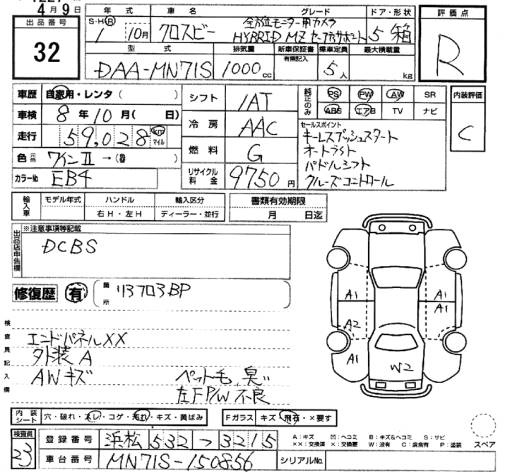 4月9日
出品番号
32
年式 車名 グレード ドア・形状 評価点
S・H・R 1年10月 クロスビー 全方位モニター用カメラ
HYBRID MZ セーフティサポート 5 箱
R
型式 排気量 新車保証書 乗車定員 最大積載量
有無記入
DAA-MN71S 1000cc 5人 kg
車歴 自家用・レンタ( )
車検 8年10月(日)
走行 59,028 km マイル
色 ワインⅡ→( )
カラーNo EB4
シフト 1AT
冷房 AAC
燃料 G
リサイクル料金 9750円
純正のみ PS PW AW SR
ABS エアB TV ナビ
内装評価
C
セールスポイント
キーレスプッシュスタート
オートライト
パドルシフト
クルーズコントロール
輸入車 モデル年式 ハンドル 輸入区分 書類有効期限
右H・左H ディーラー・並行 月 日迄
出品店申告欄
※注意事項等記載
DCBS
修復歴 有 箇所 リ3フロ3BP
検査員記入欄
エンドパネルXX
外装A
AWキズ
ペット毛 臭い
左FPW不良
A1 A1
A2
A1 A1
W2
内装シート 穴・破れ・スレ・コゲ・汚れ・キズ・黄ばみ
Fガラス キズ・飛石・×要す
検査員
23
登録番号 浜松 532 つ 3215
車台番号 MN71S-150856
シリアルNo.
A:キズ M:ヘコミ B:キズ&ヘコミ S:サビ
××:交換済 ×:要交換 W:波有 C:腐食有 P:塗装
スペア